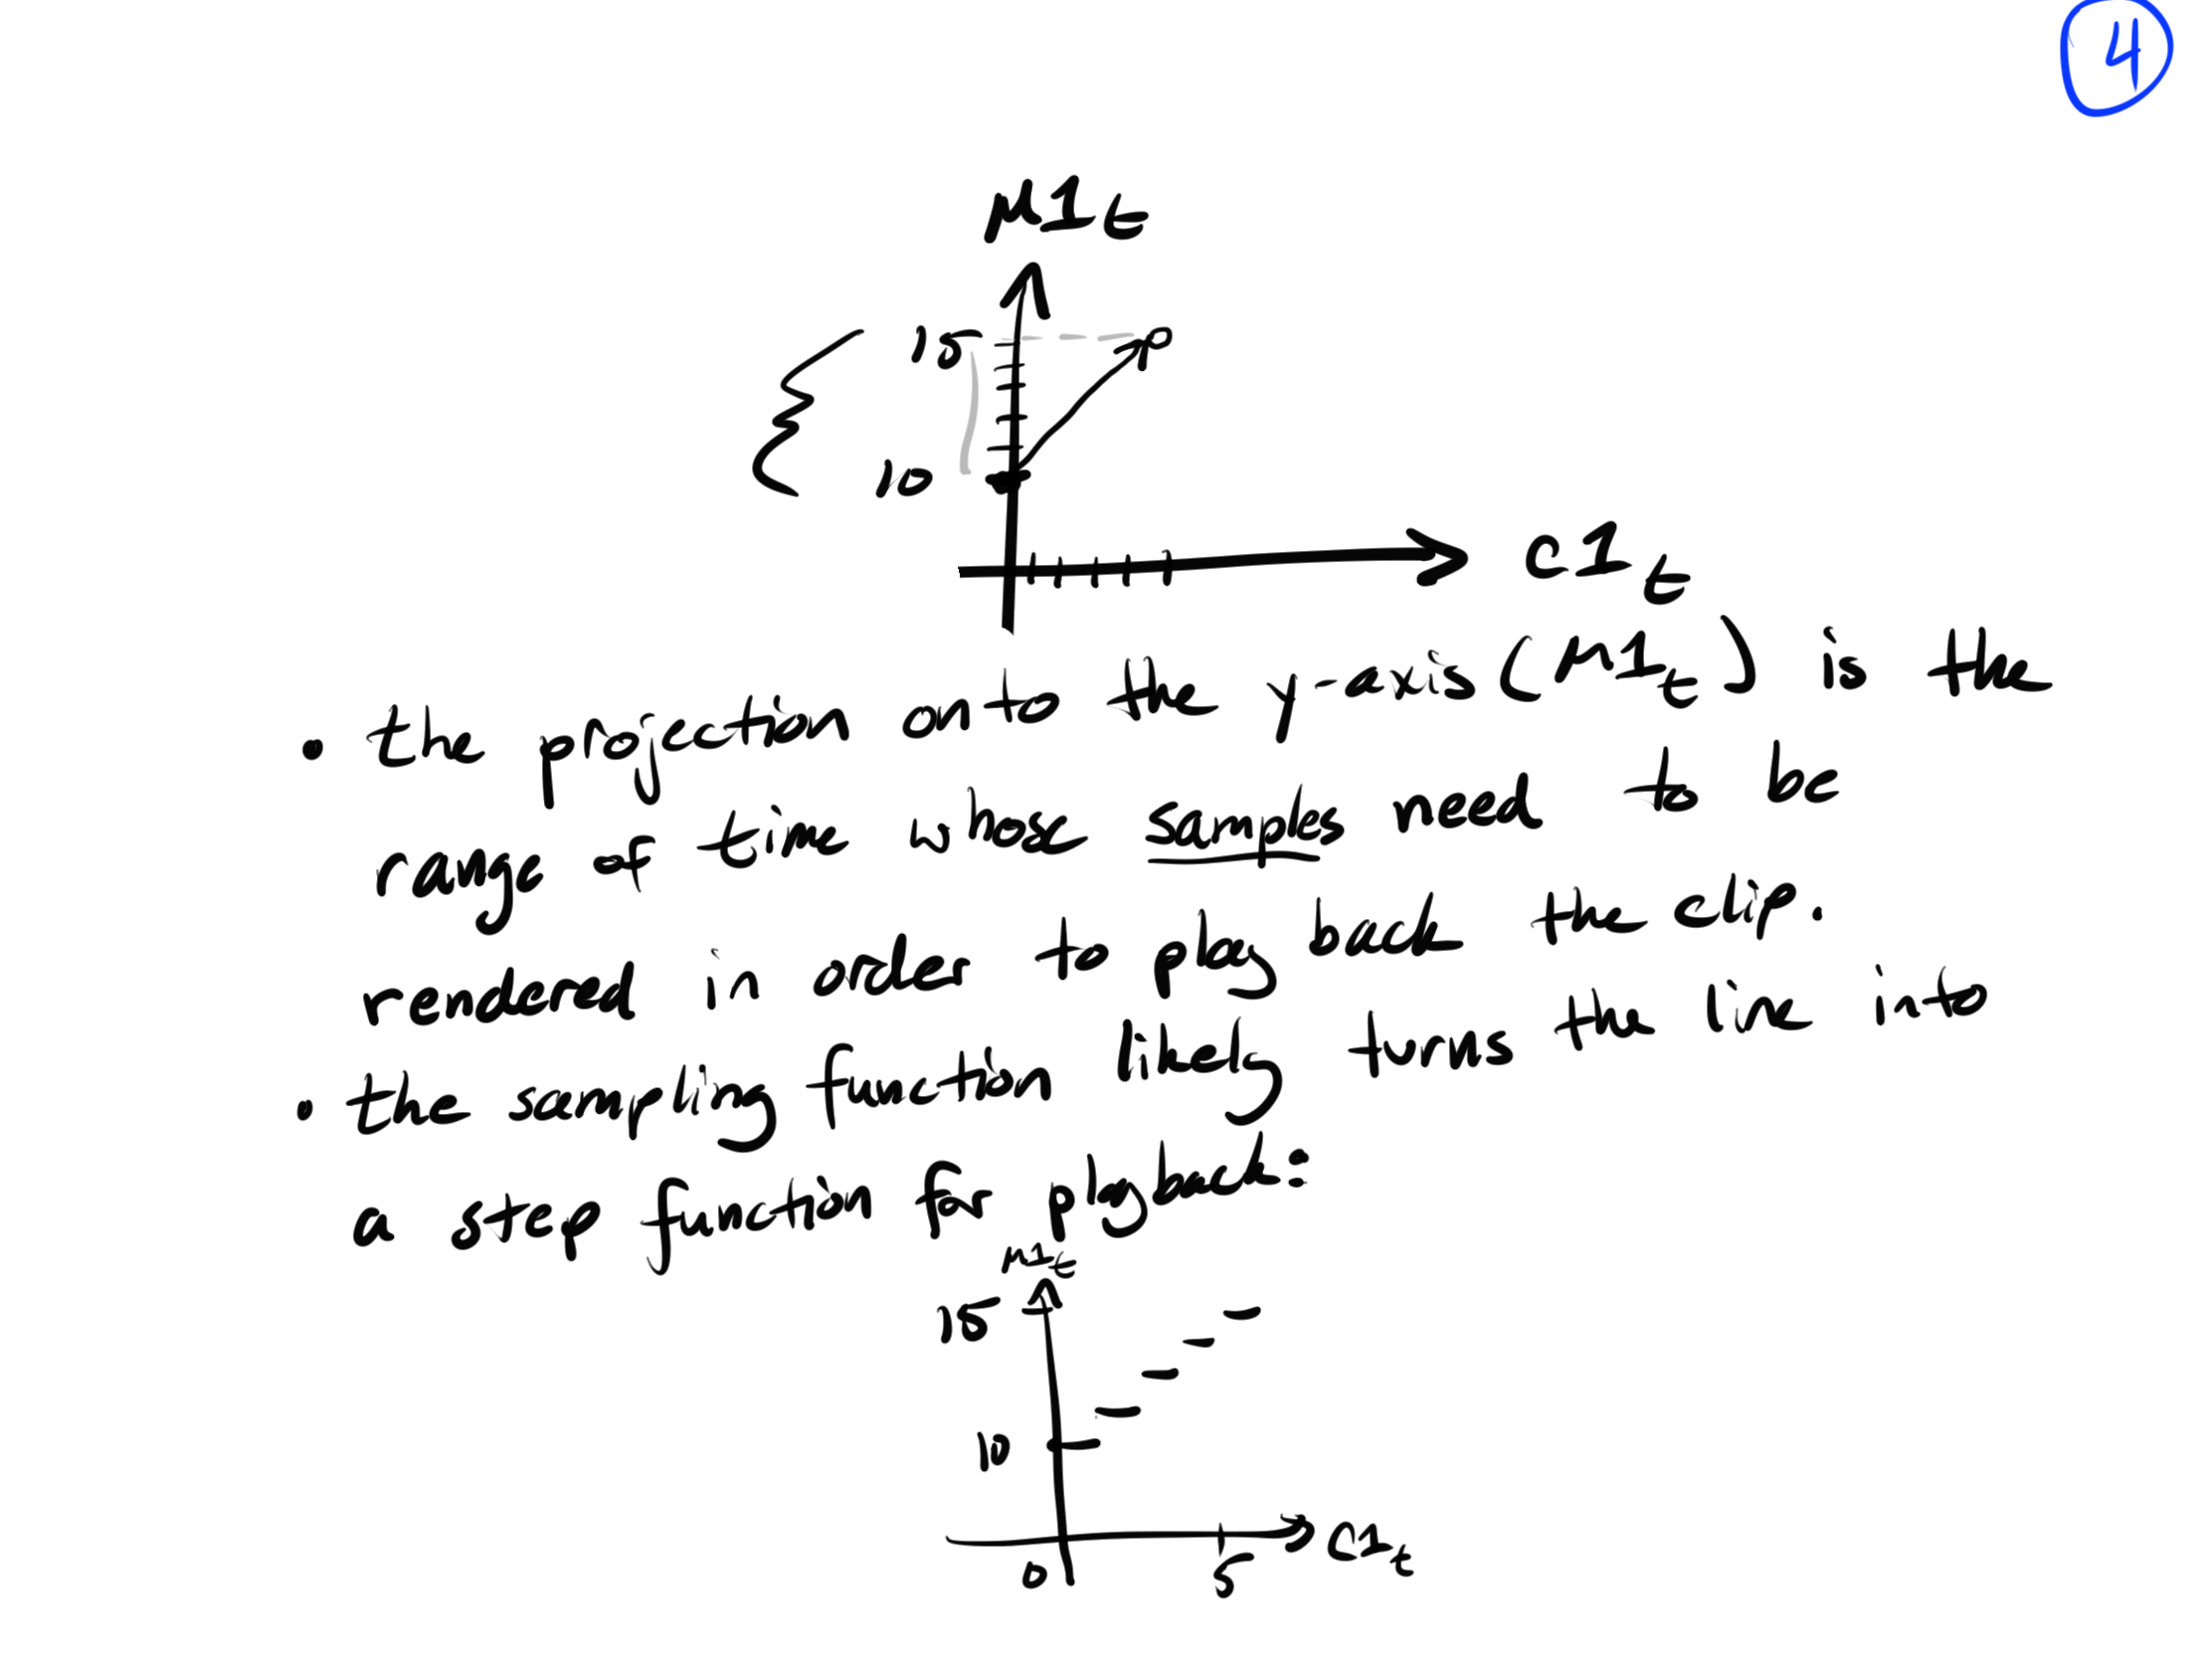 4
M1t
15
10
C1t
• the projection onto the y-axis (M1t) is the
range of time whose samples need to be
rendered in order to play back the clip.
• the sampling function likely turns the line into
a step function for playback:
M1t
15
10
0 5 C1t